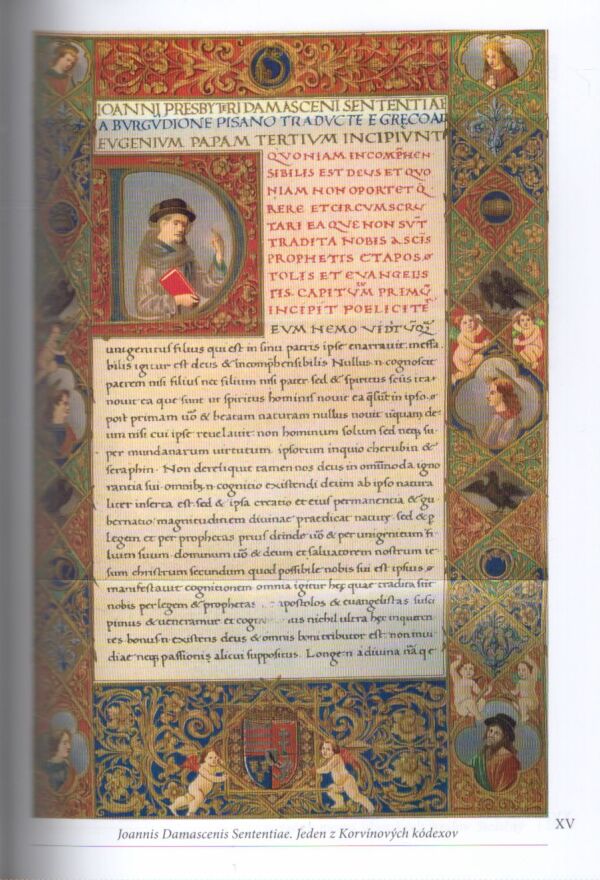 IOANNI PRESBYTERI DAMASCENI SENTENTIAE
A BURGUDIONE PISANO TRADUCTE E GRĘCO AD
EUGENIUM PAPAM TERTIUM INCIPIUNT
QUONIAM INCOMPHEN
SIBILIS EST DEUS ET QUO
NIAM NON OPORTET Q
RERE ET CIRCUMSCRU
TARI EA QUE NON SVT
TRADITA NOBIS A SCIS
PROPHETIS ET APOS
TOLIS ET EVANGELIS
TIS. CAPITVM PRIMU
INCIPIT FOELICITE
EUM NEMO VIDIT UQ
unigenitus filius qui est in sinu patris ipse enarravit. ineffa
bilis igitur est deus & incomphensibilis Nullus. n. cognoscit
patrem nisi filius nec filium nisi pater sed & spiritus scus ita
novit ea que sunt ut spiritus hominis novit ea q sut in ipso.
post primam uo & beatam naturam nullus novit uquam de
um nisi cui ipse revelavit. non hominum solum sed neq su
per mundanarum virtutum ipsorum inquio cherubin &
seraphin. Non dereliquit tamen nos deus in omnioda igno
rantia sui. omnib. n. cognitio existendi deum ab ipso natura
liter inserta est. sed & ipsa creatio et eius permanentia & gu
bernatio magnitudinem divinae praedicat nature. sed & p
legem et per prophetas prius deinde uo & per unigenitum fi
lium suum. dominum uo & deum et salvatorem nostrum ie
sum christum secundum quod possibile nobis sui est ipsius
manifestavit cognitionem omnia igitur hęc quae tradita sut
nobis per legem & prophetas apostolos & euangelistas susci
pimus & veneramur et nihil ultra hęc inquiren
tes. bonus. n. existens deus & omnis boni tributor est. non invi
diae neq passionis alicui suppositus. Longe. n. a divina
Joannis Damascenis Sententiae. Jeden z Korvínových kódexov
XV